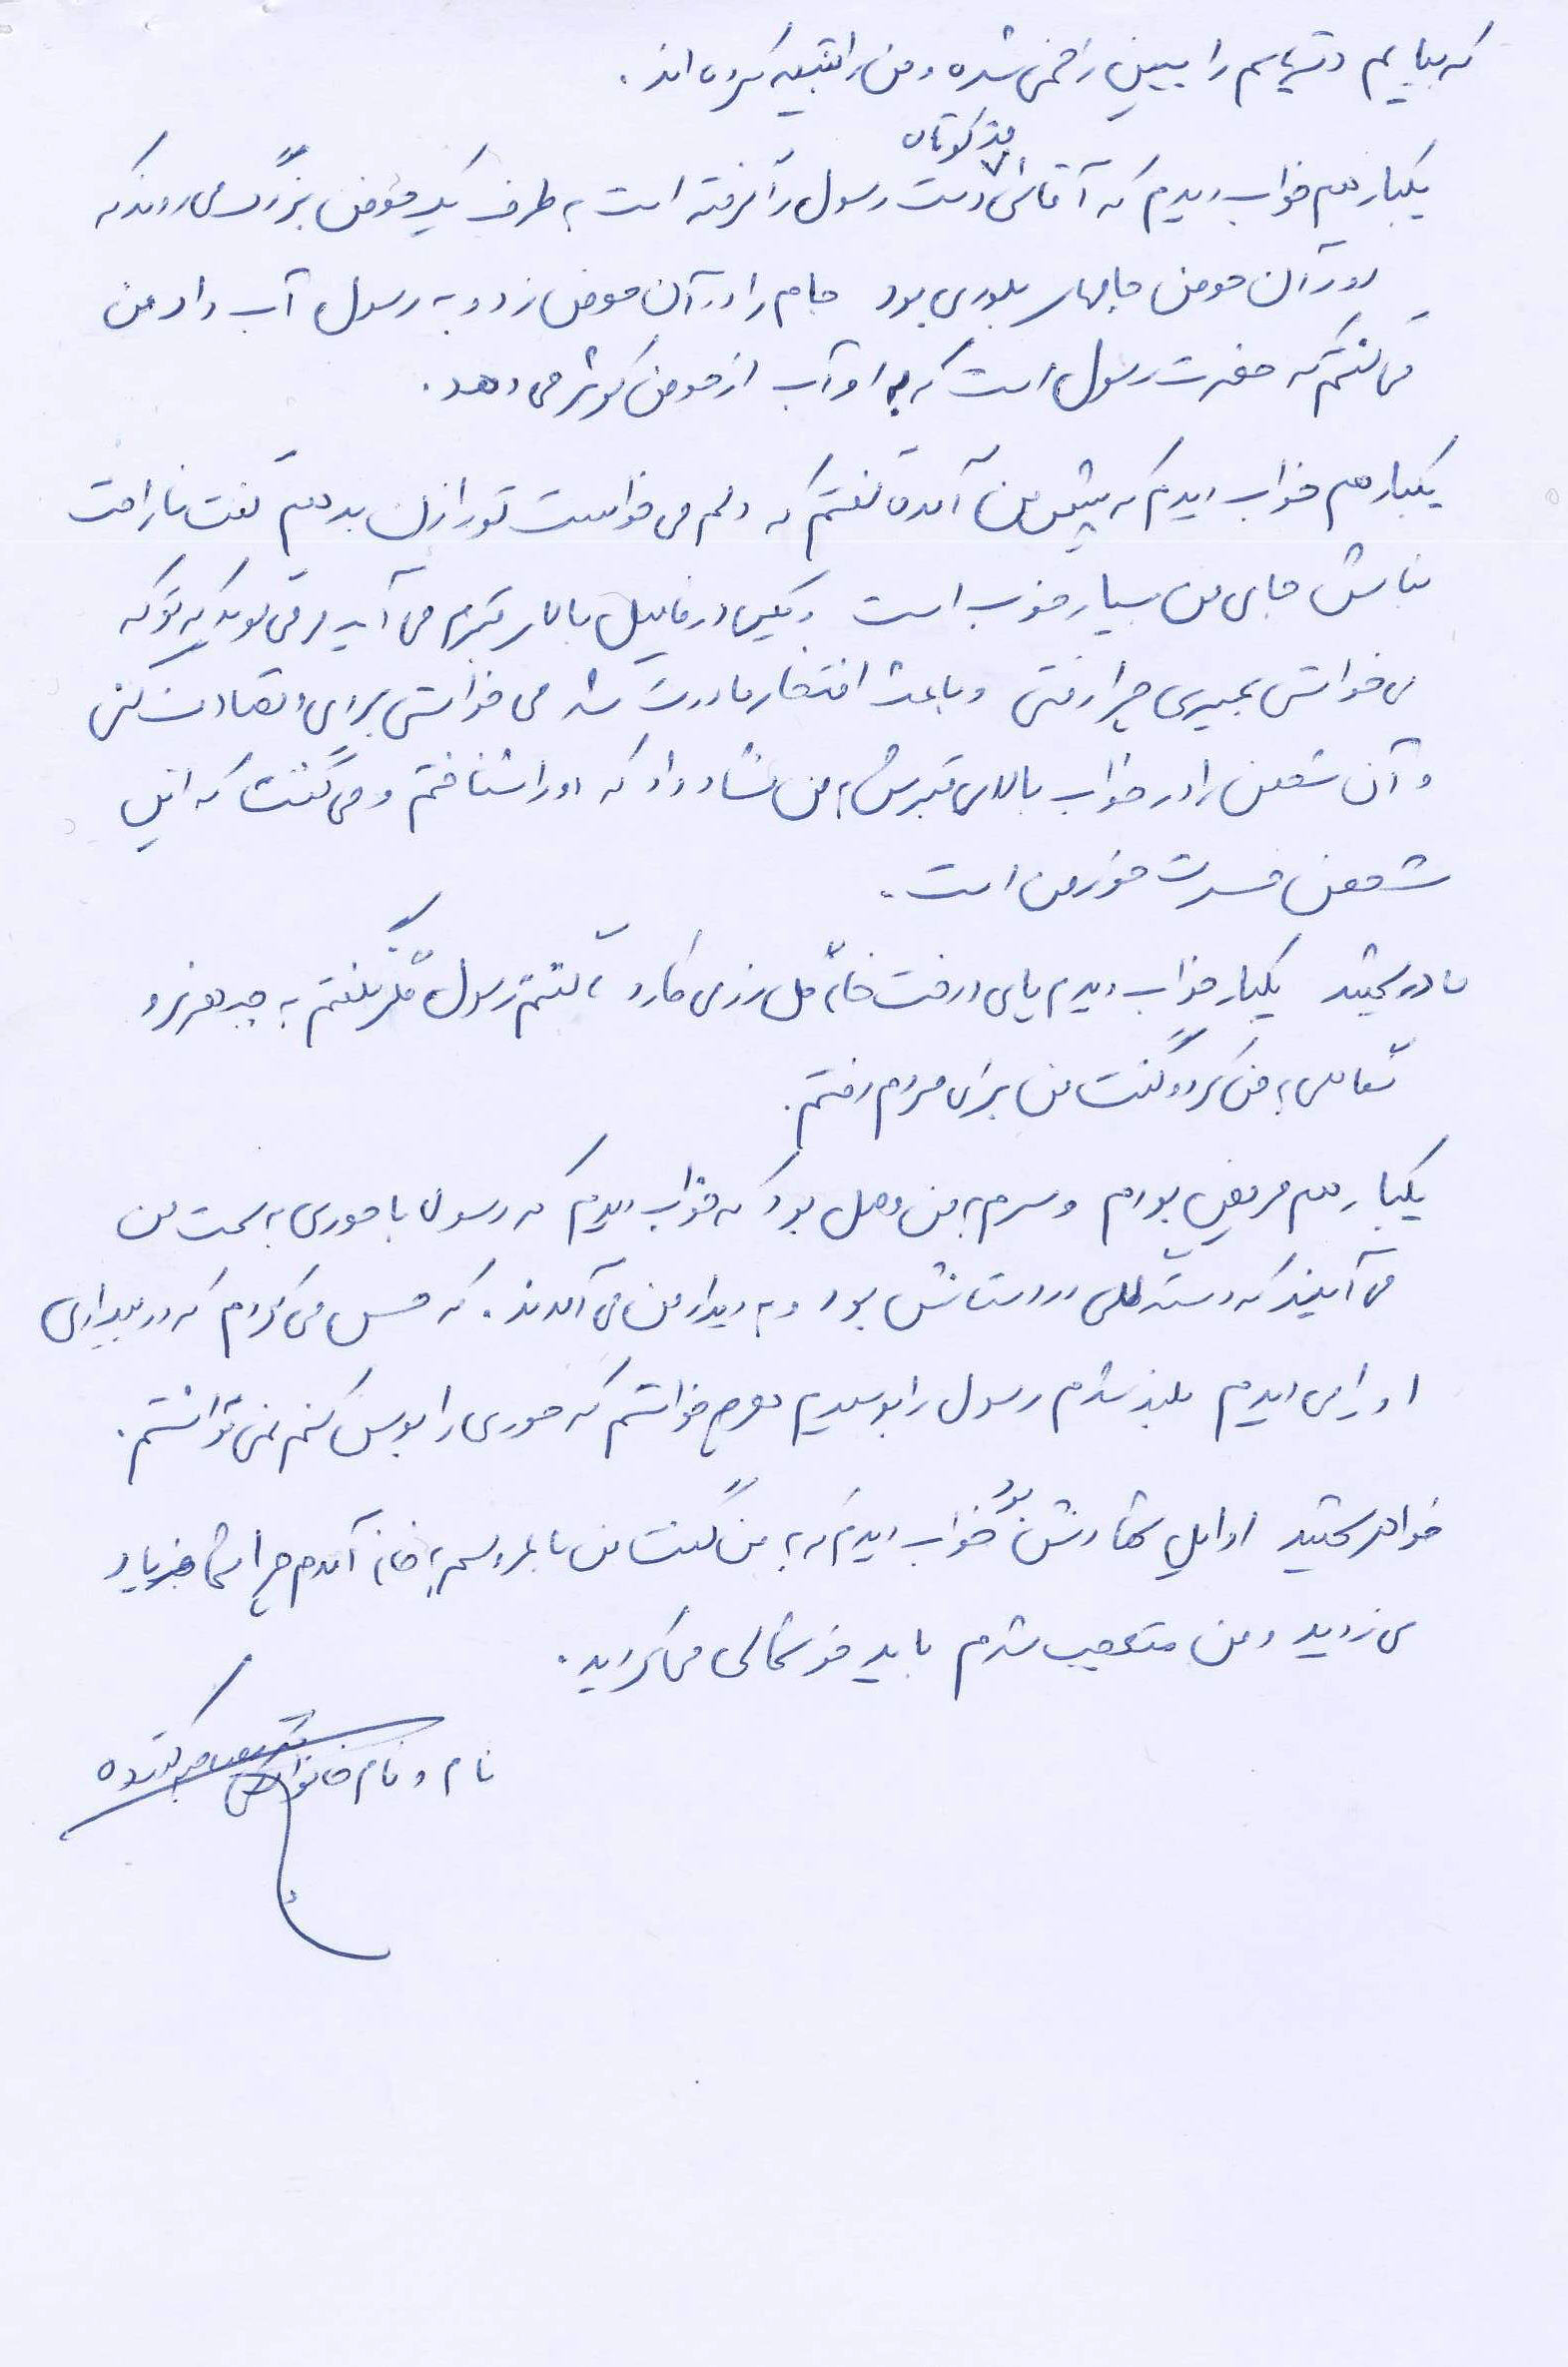 که بیایم دستهایم را ببین زخمی شده و من را تنبیه کرده اند.
یکبار هم خواب دیدم که آقای قد کوتاه دست رسول را گرفته است به طرف یک حوض بزرگ می روند که
دور آن حوض جامهای بلوری بود جام را در آن حوض زد و به رسول آب داد من
می گفتم که حضرت رسول است که به او آب از حوض کوثر می دهد.
یکبار هم خواب دیدم که پیش من آمده گفتم که دلم می خواست تو را زن بدهم گفت ناراحت
نباش جای من بسیار خوب است و یکی در فامیل بالای قبرم می آید و می گوید که تو که
می خواستی بمیری چرا رفتی و باعث افتخار مادرت شد می خواستی برای
و آن شخص را در خواب بالای قبرش به من نشان داد که او را شناختم و می گفت که این
شخص خود من است.
مادر شهید یکبار خواب دیدم پای درخت خانه گل رز می کارد، گفتم رسول مگر نگفتم به جبهه نرو
نگاهی به من کرد و گفت من برای مردم رفتم.
یکبار هم مریض بودم و سرم به من وصل بود که خواب دیدم که رسول با حوری به سمت من
می آیند که دسته گلی در دستانش بود و به دیدار من می آمدند. که حس می کردم که در بیداری
او را می دیدم بلند شدم رسول را بوسیدم هرچه خواستم که حوری را بوس کنم نمی توانستم.
خواهر شهید اوایل شهادتش بود خواب دیدم که به من گفت من با عروسم به خانه آمدم چرا شما فریاد
می زدید و من متعجب شدم باید خوشحالی می کردید.
نام و نام خانوادگی